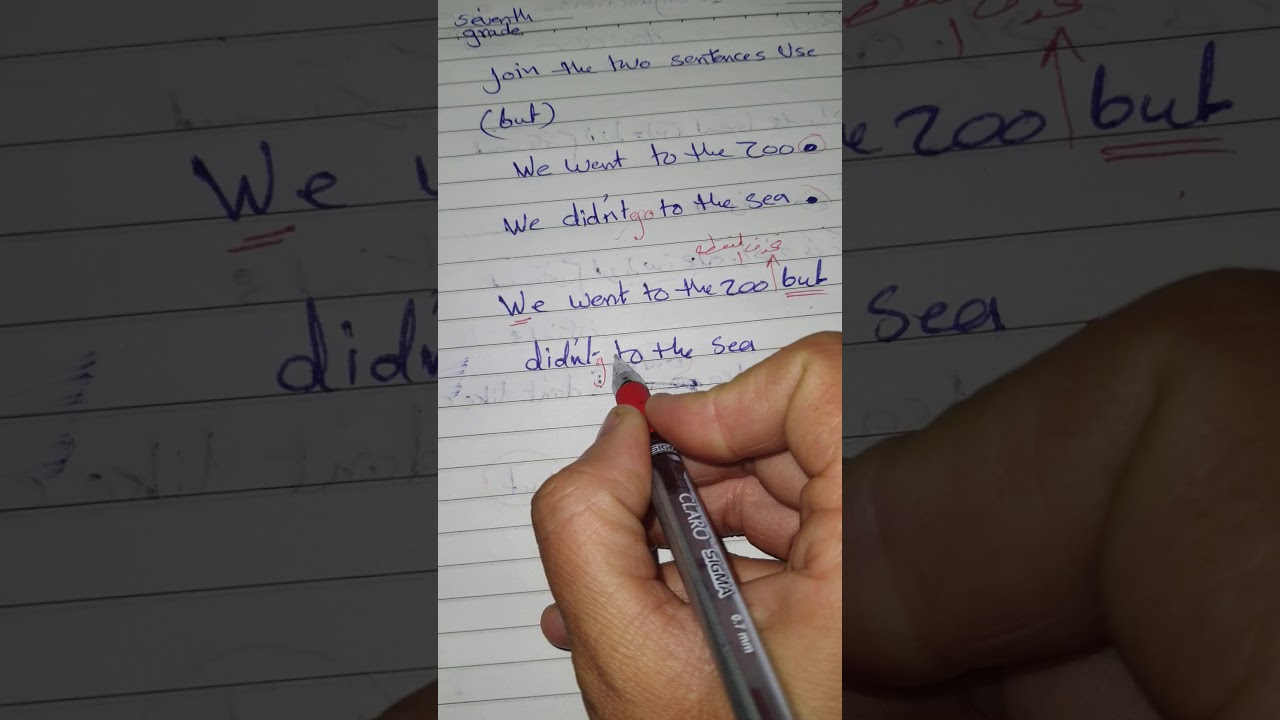 seventh
grade
Join the two sentences Use
(but)
We went to the zoo.
We didn't go to the sea.
تحذف النقطة
We went to the zoo but
didn't g to the sea
SIGMA
CLARO SIGMA 0.7 mm